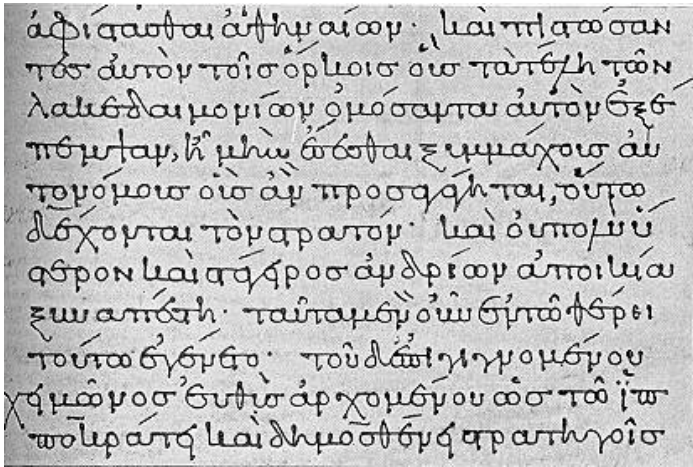 ἀφίστασθαι ἀθηναίων· καὶ πιστώσαν
τες αὐτὸν τοῖς ὅρκοις οἷς τὰ τέλη τῶν
λακεδαιμονίων ὀμόσαντα αὐτὸν ἐξέ
πεμψαν, ἦ μὴν ἔσεσθαι ξυμμάχοις αὐ
τονόμοις οἷς ἂν προσαγάγηται, οὕτω
δέχονται τὸν στρατόν· καὶ οὐ πολὺ ὕ
στερον καὶ στάγειρος ἀνδρίων ἀποικία
ξυναπέστη· ταῦτα μὲν οὖν ἐν τῶ θέρει
τούτω ἐγένετο· τοῦ δ' ἐπιγιγνομένου
χειμῶνος εὐθὺς ἀρχομένου ὡς τῶ ἱπ
ποκράτει καὶ δημοσθένει στρατηγοῖς